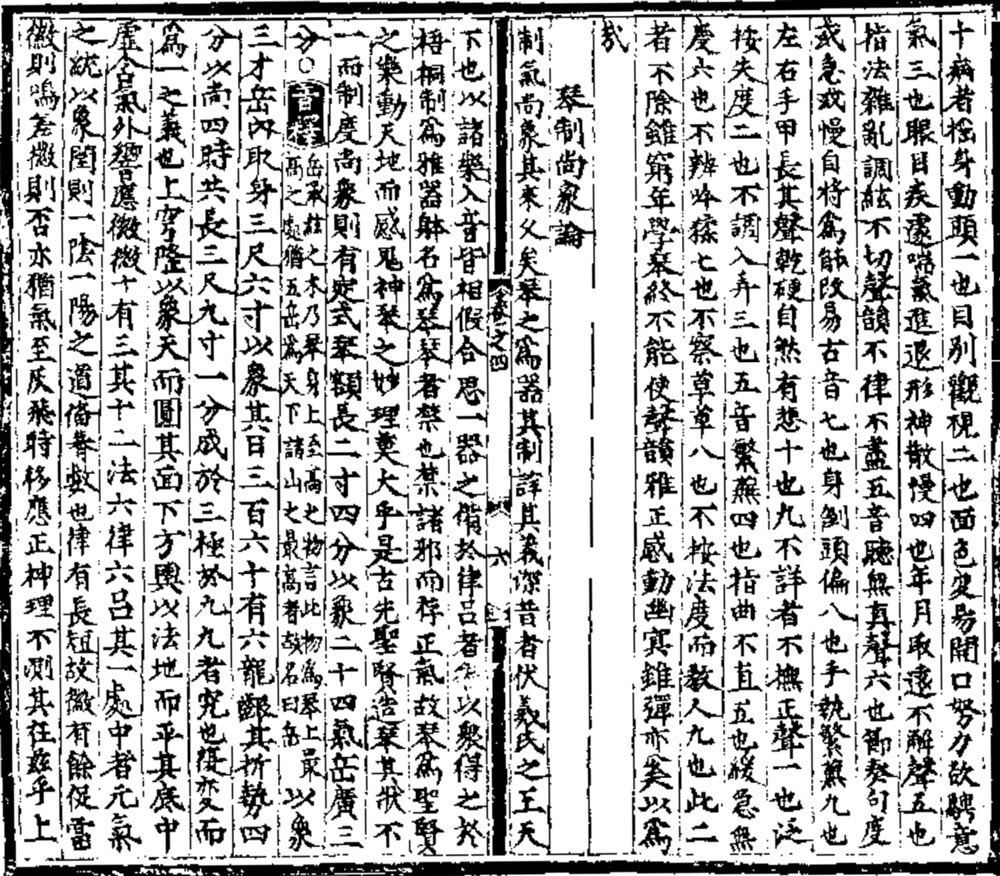 十病者搖身動頭一也目別觀視二也面色变易開口努力欲騁意
氣三也眼目疾遽喘氣進退形神散慢四也年月取遠不解聲五也
指法雜亂調絃不切聲韻不律不盡五音聽無真聲六也節奏句度
或急或慢自將爲能改易古音七也身倒頭偏八也手執繁蕪九也
左右手甲長其聲乾硬自然有悲十也九不詳者不撫正聲一也泛
按失度二也不調入弄三也五音繁蕪四也指曲不直五也緩急無
度六也不辨吟猱七也不察草草八也不按法度而教人九也此二
者不除雖窮年學琴終不能使聲韻雅正感動幽冥雖彈亦奚以爲
哉
琴制尚象論
制氣尚象其來久矣琴之爲器其制詳其義深昔者伏羲氏之王天
下也以諸樂八音皆相假合思一器之偹於律呂者以聚得之於
梧桐制爲雅器躰名爲琴琴者禁也禁諸邪而存正氣故琴爲聖賢
之樂動天地而感鬼神琴之妙理奧大乎是古先聖賢造琴其狀不
一而制度尚象則有定式琴額長二寸四分以象二十四氣岳廣三
分○岳承絃之木乃琴身上至高之物言此物爲琴上最高之處猶五岳爲天下諸山之最高者故名曰岳以象
三才岳內取身三尺六寸以象其日三百六十有六龍齦其折勢四
分以尚四時共長三尺九寸一分成於三極於九九者究也復变而
爲一之義也上穹隆以象天而圓其面下方輿以法地而平其底中
虛含氣外響應徽徽十有三其十二法六律六呂其一處中者元氣
之統以象閏則一陰一陽之道偹眷數也律有長短故徽有餘促當
徽則鳴差徽則否亦猶氣至灰飛時移應正神理不測其在玆乎上
卷之四
六